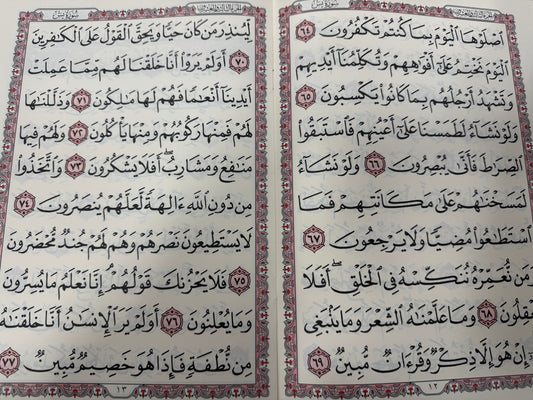 سُورَةُ يسٓ
ٱصْلَوْهَا ٱلْيَوْمَ بِمَا كُنتُمْ تَكْفُرُونَ ٦٤
ٱلْيَوْمَ نَخْتِمُ عَلَىٰٓ أَفْوَٰهِهِمْ وَتُكَلِّمُنَآ أَيْدِيهِمْ
وَتَشْهَدُ أَرْجُلُهُم بِمَا كَانُوا۟ يَكْسِبُونَ ٦٥
وَلَوْ نَشَآءُ لَطَمَسْنَا عَلَىٰٓ أَعْيُنِهِمْ فَٱسْتَبَقُوا۟
ٱلصِّرَٰطَ فَأَنَّىٰ يُبْصِرُونَ ٦٦ وَلَوْ نَشَآءُ
لَمَسَخْنَٰهُمْ عَلَىٰ مَكَانَتِهِمْ فَمَا
ٱسْتَطَٰعُوا۟ مُضِيًّا وَلَا يَرْجِعُونَ ٦٧
وَمَن نُّعَمِّرْهُ نُنَكِّسْهُ فِى ٱلْخَلْقِ ۖ أَفَلَا
يَعْقِلُونَ ٦٨ وَمَا عَلَّمْنَٰهُ ٱلشِّعْرَ وَمَا يَنۢبَغِى
لَهُۥٓ ۚ إِنْ هُوَ إِلَّا ذِكْرٌ وَقُرْءَانٌ مُّبِينٌ ٦٩
١٢
سُورَةُ يسٓ
لِّيُنذِرَ مَن كَانَ حَيًّا وَيَحِقَّ ٱلْقَوْلُ عَلَى ٱلْكَٰفِرِينَ
٧٠ أَوَلَمْ يَرَوْا۟ أَنَّا خَلَقْنَا لَهُم مِّمَّا عَمِلَتْ
أَيْدِينَآ أَنْعَٰمًا فَهُمْ لَهَا مَٰلِكُونَ ٧١ وَذَلَّلْنَٰهَا
لَهُمْ فَمِنْهَا رَكُوبُهُمْ وَمِنْهَا يَأْكُلُونَ ٧٢ وَلَهُمْ فِيهَا
مَنَٰفِعُ وَمَشَارِبُ ۖ أَفَلَا يَشْكُرُونَ ٧٣ وَٱتَّخَذُوا۟
مِن دُونِ ٱللَّهِ ءَالِهَةً لَّعَلَّهُمْ يُنصَرُونَ ٧٤
لَا يَسْتَطِيعُونَ نَصْرَهُمْ وَهُمْ لَهُمْ جُندٌ مُّحْضَرُونَ
٧٥ فَلَا يَحْزُنكَ قَوْلُهُمْ ۘ إِنَّا نَعْلَمُ مَا يُسِرُّونَ
وَمَا يُعْلِنُونَ ٧٦ أَوَلَمْ يَرَ ٱلْإِنسَٰنُ أَنَّا خَلَقْنَٰهُ
مِن نُّطْفَةٍ فَإِذَا هُوَ خَصِيمٌ مُّبِينٌ ٧٧
١٣